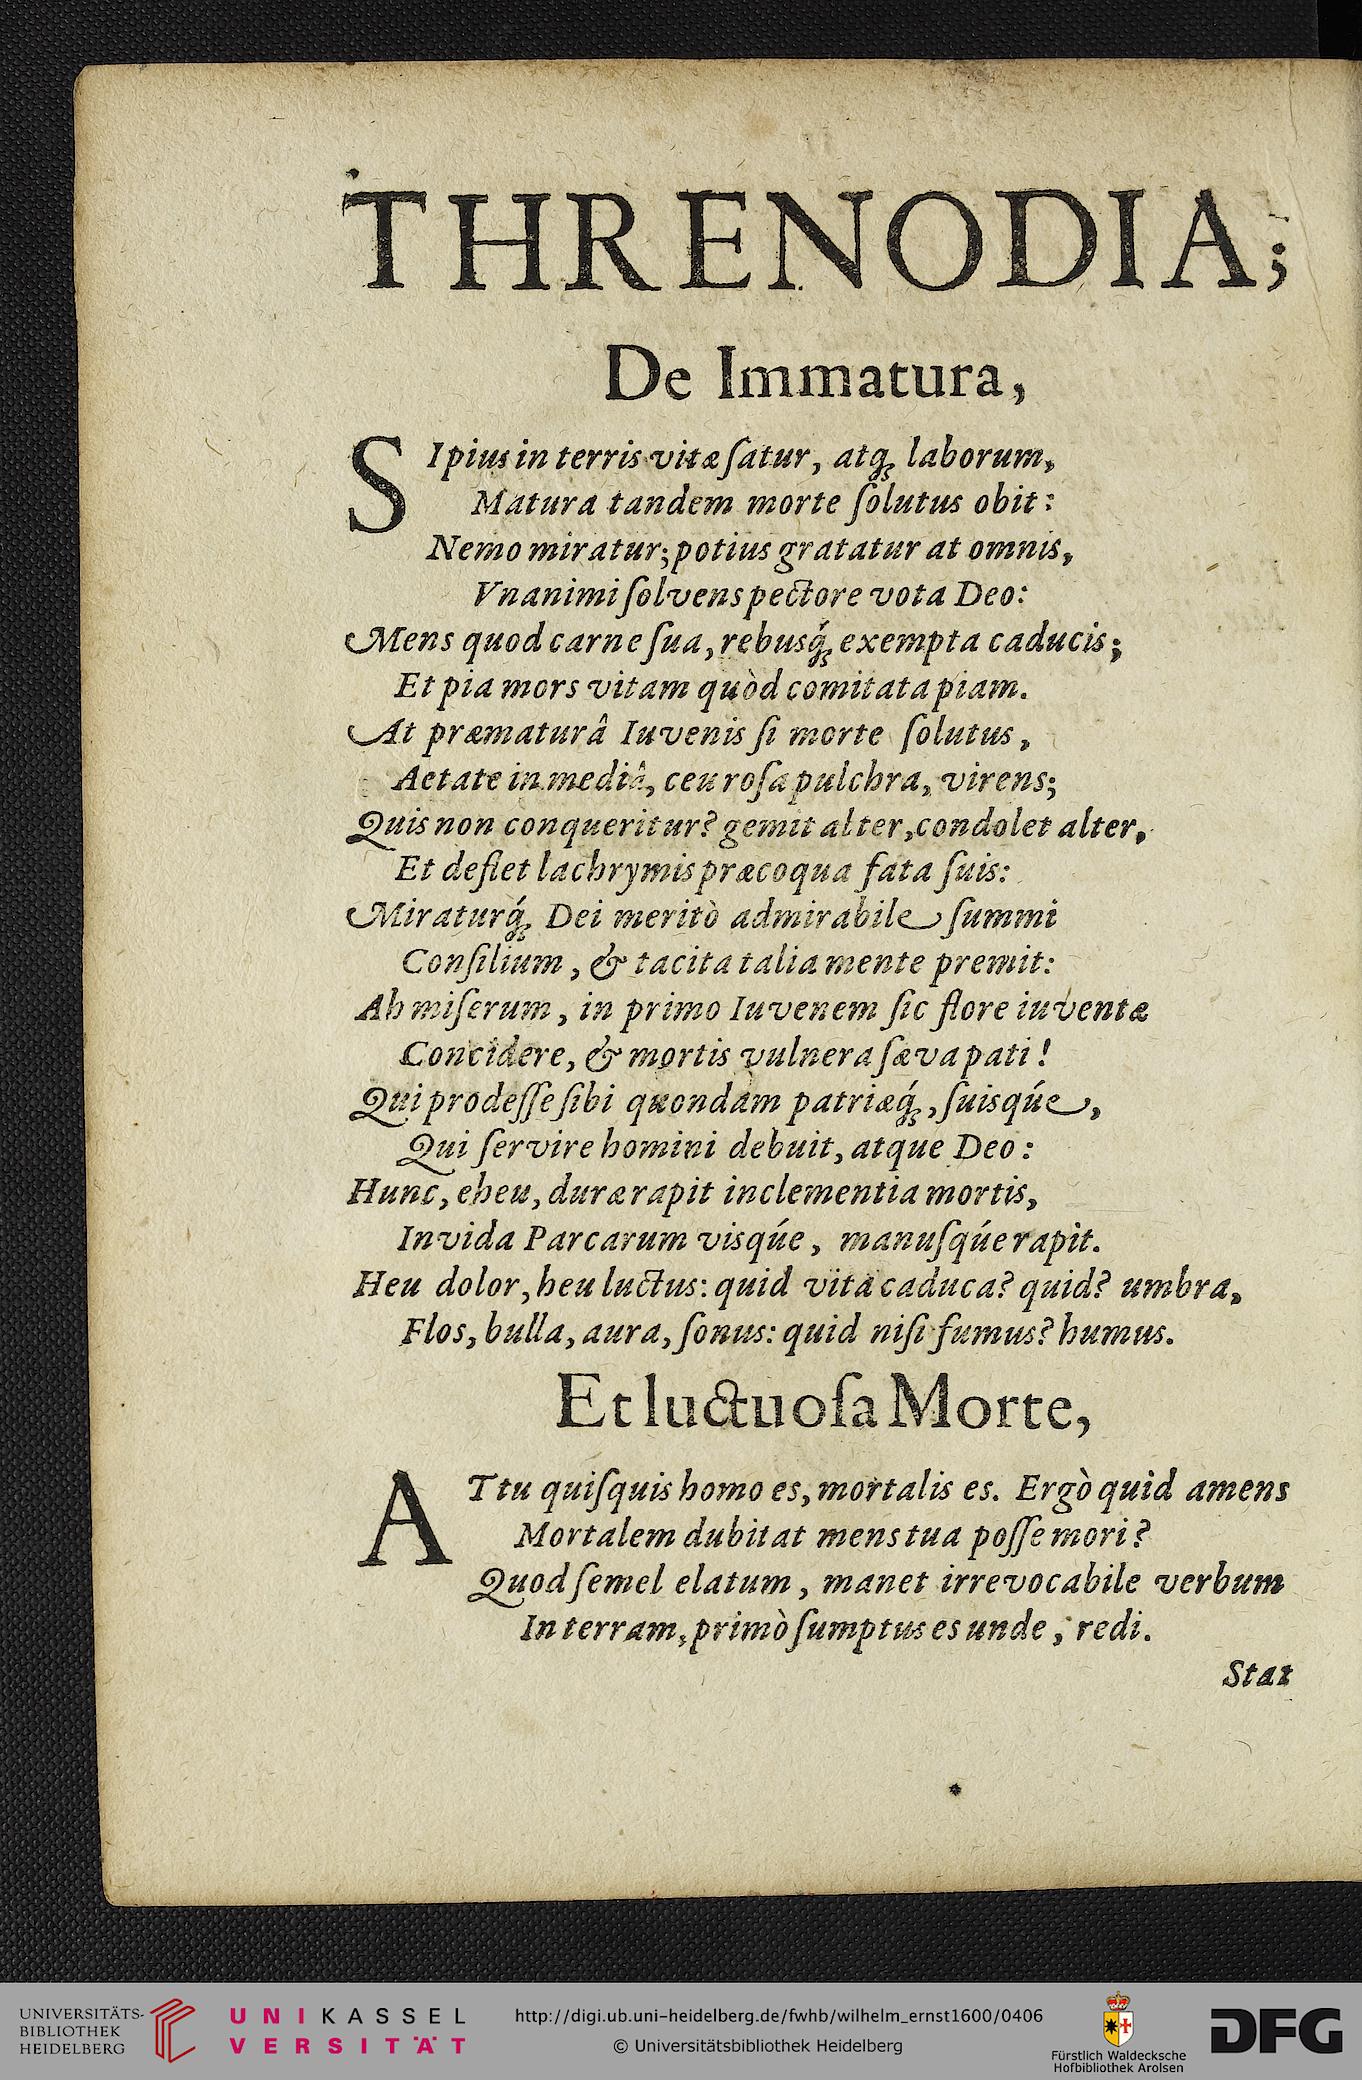 THRENODIA;
De Immatura,
SI pius in terris vitæ ſatur, atq; laborum,
Matura tandem morte ſolutus obit:
Nemo miratur; potius gratatur at omnis,
Vnanimi ſolvens pectore vota Deo:
Mens quod carne ſua, rebusq́; exempta caducis;
Et pia mors vitam quòd comitata piam.
At præmaturâ Iuvenis ſi morte ſolutus,
Aetate in mediâ, ceu roſa pulchra, virens;
Quis non conqueritur? gemit alter, condolet alter,
Et deflet lachrymis præcoqua fata ſuis:
Miraturq́; Dei meritò admirabile ſummi
Conſilium, & tacita talia mente premit:
Ah miſerum, in primo Iuvenem ſic flore iuventæ
Concidere, & mortis vulnera ſæva pati!
Qui prodeſſe ſibi quondam patriæq́;, ſuisqúe,
Qui ſervire homini debuit, atque Deo:
Hunc, eheu, duræ rapit inclementia mortis,
Invida Parcarum visqúe, manuſqúe rapit.
Heu dolor, heu luctus: quid vita caduca? quid? umbra,
Flos, bulla, aura, ſonus: quid niſi fumus? humus.
Et luctuoſa Morte,
AT tu quiſquis homo es, mortalis es. Ergò quid amens
Mortalem dubitat mens tua poſſe mori?
Quod ſemel elatum, manet irrevocabile verbum
In terram, primò ſumptus es unde, redi.
Stat
UNIVERSITÄTS-
BIBLIOTHEK
HEIDELBERG
UNIKASSEL
VERSITÄT
http://digi.ub.uni-heidelberg.de/fwhb/wilhelm_ernst1600/0406
© Universitätsbibliothek Heidelberg
Fürstlich Waldecksche
Hofbibliothek Arolsen
DFG